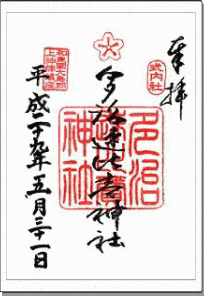 奉拝
式内社
多治速比売神社
多治
速比賣
神社
和泉國大鳥郡
上神郷鎮座
平成二十九年五月三十一日